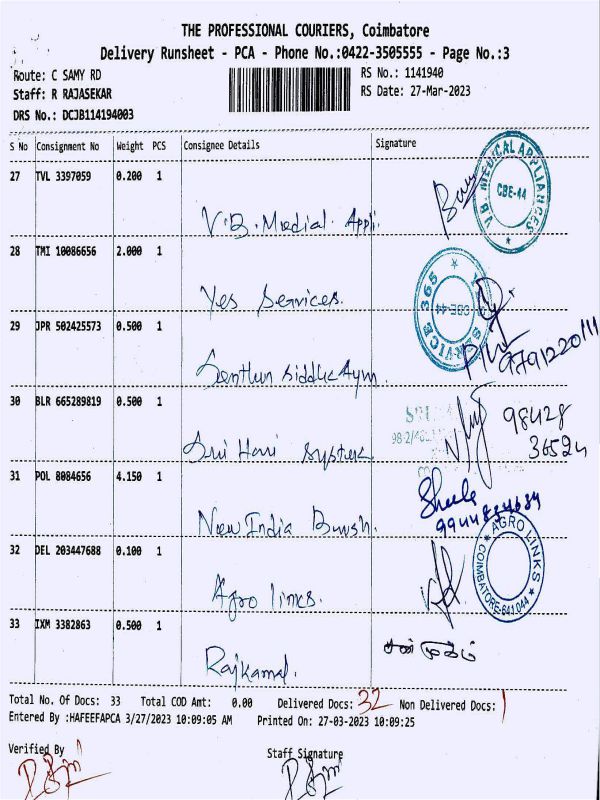 THE PROFESSIONAL COURIERS, Coimbatore
Delivery Runsheet - PCA - Phone No.:0422-3505555 - Page No.:3
Route: C SAMY RD
RS No.: 1141940
Staff: R RAJASEKAR
RS Date: 27-Mar-2023
DRS No.: DCJB114194003
S No Consignment No Weight PCS Consignee Details Signature
27 TVL 3397059 0.200 1
V.B. Medial Appli.
V.B. MEDICAL APPLIANCES
CBE-44
28 TMI 10086656 2.000 1
Yes Services.
SERVICE 365
COE-44
29 JPR 502425573 0.500 1
30 BLR 665289819 0.500 1
98428
36524
Sri Hari
31 POL 8084656 4.150 1
Sheela
New India Brush.
32 DEL 203447688 0.100 1
Agro links.
AGRO LINKS
COIMBATORE-641 044
33 IXM 3382863 0.500 1
சண்முகம்
Rajkamal.
Total No. Of Docs: 33 Total COD Amt: 0.00 Delivered Docs: 32 Non Delivered Docs: 1
Entered By :HAFEEFAPCA 3/27/2023 10:09:05 AM Printed On: 27-03-2023 10:09:25
Verified By
Staff Signature